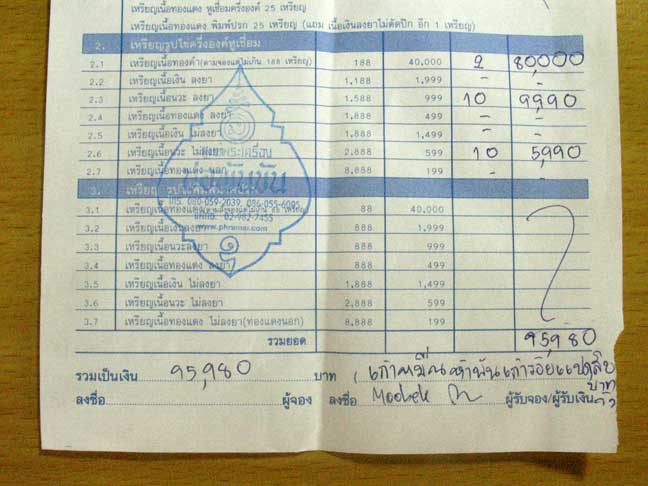 เหรียญเนื้อทองแดง หูเชื่อมครึ่งองค์ 25 เหรียญ
เหรียญเนื้อทองแดง พิมพ์ปรก 25 เหรียญ (แถม เนื้อเงินลงยาไม่ตัดปีก อีก 1 เหรียญ)
2. เหรียญรูปไข่ครึ่งองค์หูเชื่อม
2.1 เหรียญเนื้อทองคำ(ตามจองแต่ไม่เกิน 188 เหรียญ) 188 40,000 2 80,000
2.2 เหรียญเนื้อเงิน ลงยา 1,188 1,999 - -
2.3 เหรียญเนื้อนวะ ลงยา 1,588 999 10 9,990
2.4 เหรียญเนื้อทองแดง ลงยา 1,888 499 - -
2.5 เหรียญเนื้อเงิน ไม่ลงยา 1,888 1,499 - -
2.6 เหรียญเนื้อนวะ ไม่ลงยา 2,888 599 10 5,990
2.7 เหรียญเนื้อทองแดง นอก 8,888 199 - -
3. เหรียญ รูปไข่
3.1 เหรียญเนื้อทองคำ 88 40,000
3.2 เหรียญเนื้อเงินลงยา 888 1,999
3.3 เหรียญเนื้อนวะลงยา 888 999
3.4 เหรียญเนื้อทองแดง ลงยา 888 499
3.5 เหรียญเนื้อเงิน ไม่ลงยา 1,888 1,499
3.6 เหรียญเนื้อนวะ ไม่ลงยา 2,888 599
3.7 เหรียญเนื้อทองแดง ไม่ลงยา(ทองแดงนอก) 8,888 199
รวมยอด 95,980
โทร. 080-059-2039, 084-055-6095
แฟกซ์. 02-982-7455
www.phramai.com
รวมเป็นเงิน 95,980 บาท ( เก้าหมื่นห้าพันเก้าร้อยแปดสิบบาท
ลงชื่อ ผู้จอง ลงชื่อ ผู้รับจอง/ผู้รับเงิน